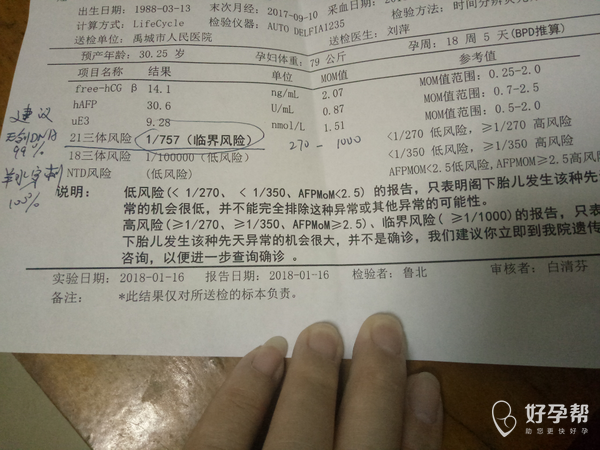 出生日期: 1988-03-13 末次月经: 2017-09-10 采血日期: 201
计算方式: LifeCycle 检验仪器: AUTO DELFIA1235 检验方法: 时间分辨荧光
送检单位: 禹城市人民医院 送检医生: 刘萍
预产年龄: 30.25 岁 孕妇体重: 79 公斤 孕周: 18 周 5 天(BPD推算)
项目名称 结果 单位 MOM值 参考值
free-hCG β 14.1 ng/mL 2.07 MOM值范围: 0.25-2.0
hAFP 30.6 U/mL 0.87 MOM值范围: 0.7-2.5
uE3 9.28 nmol/L 1.51 MOM值范围: 0.5-2.0
21三体风险 1/757 (临界风险) 270 - 1000 <1/270 低风险, ≥1/270 高风险
18三体风险 1/100000 (低风险) <1/350 低风险, ≥1/350 高风险
NTD风险 (低风险) AFPMOM<2.5低风险,AFPMOM≥2.5高风险
建议
无创DNA
99%
羊水穿刺
100%
说明: 低风险(< 1/270、 < 1/350、AFPMoM<2.5) 的报告, 只表明阁下胎儿发生该种先天
常的机会很低, 并不能完全排除这种异常或其他异常的可能性。
高风险(≥1/270、≥1/350、AFPMoM≥2.5)、临界风险( ≥1/1000) 的报告, 只表
下胎儿发生该种先天异常的机会很大, 并不是确诊, 我们建议你立即到我院遗传
咨询, 以便进一步查询确诊 。
实验日期: 2018-01-16 报告日期: 2018-01-16 检验者: 鲁北 审核者: 白清芬
备注: *此结果仅对所送检的标本负责。
好孕帮
助您更快好孕